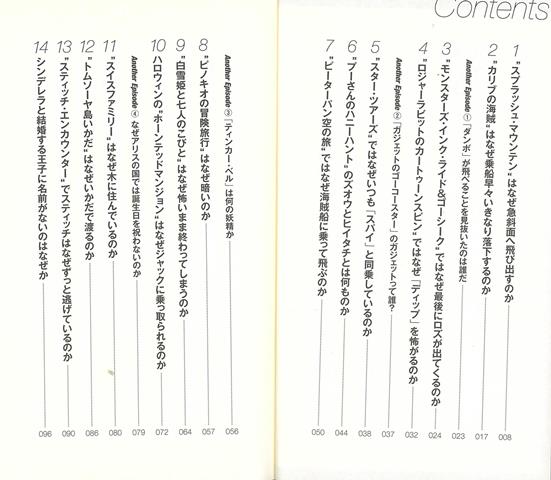 Contents
1 "スプラッシュ・マウンテン"はなぜ急斜面へ飛び出すのか 008
2 "カリブの海賊"はなぜ乗船早々いきなり落下するのか 017
Another Episode ①「ダンボ」が飛べることを見抜いたのは誰だ 023
3 "モンスターズ・インク・ライド&ゴーシーク"ではなぜ最後にロズが出てくるのか 024
4 "ロジャーラビットのカートゥーンスピン"ではなぜ「ディップ」を怖がるのか 032
Another Episode ②「ガジェットのゴーコースター」のガジェットって誰? 037
5 "スター・ツアーズ"ではなぜいつも「スパイ」と同乗しているのか 038
6 "プーさんのハニーハント"のズオウとヒイタチとは何ものか 044
7 "ピーターパン空の旅"ではなぜ海賊船に乗って飛ぶのか 050
Another Episode ③「ティンカー・ベル」は何の妖精か 056
8 "ピノキオの冒険旅行"はなぜ暗いのか 057
9 "白雪姫と七人のこびと"はなぜ怖いまま終わってしまうのか 064
10 ハロウィンの"ホーンテッドマンション"はなぜジャックに乗っ取られるのか 072
Another Episode ④ なぜアリスの国では誕生日を祝わないのか 079
11 "スイスファミリー"はなぜ木に住んでいるのか 080
12 "トムソーヤ島いかだ"はなぜいかだで渡るのか 086
13 "スティッチ・エンカウンター"でスティッチはなぜずっと逃げているのか 090
14 シンデレラと結婚する王子に名前がないのはなぜか 096